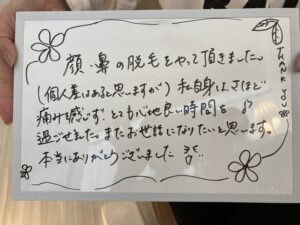 顔、鼻の脱毛をやって頂きました。
(個人差はあると思いますが) 私自身は、さほど
痛みを感じず、とても心地良い時間を
過ごせました。またお世話になりたいと思います。
本当にありがとうございました
THANK YOU